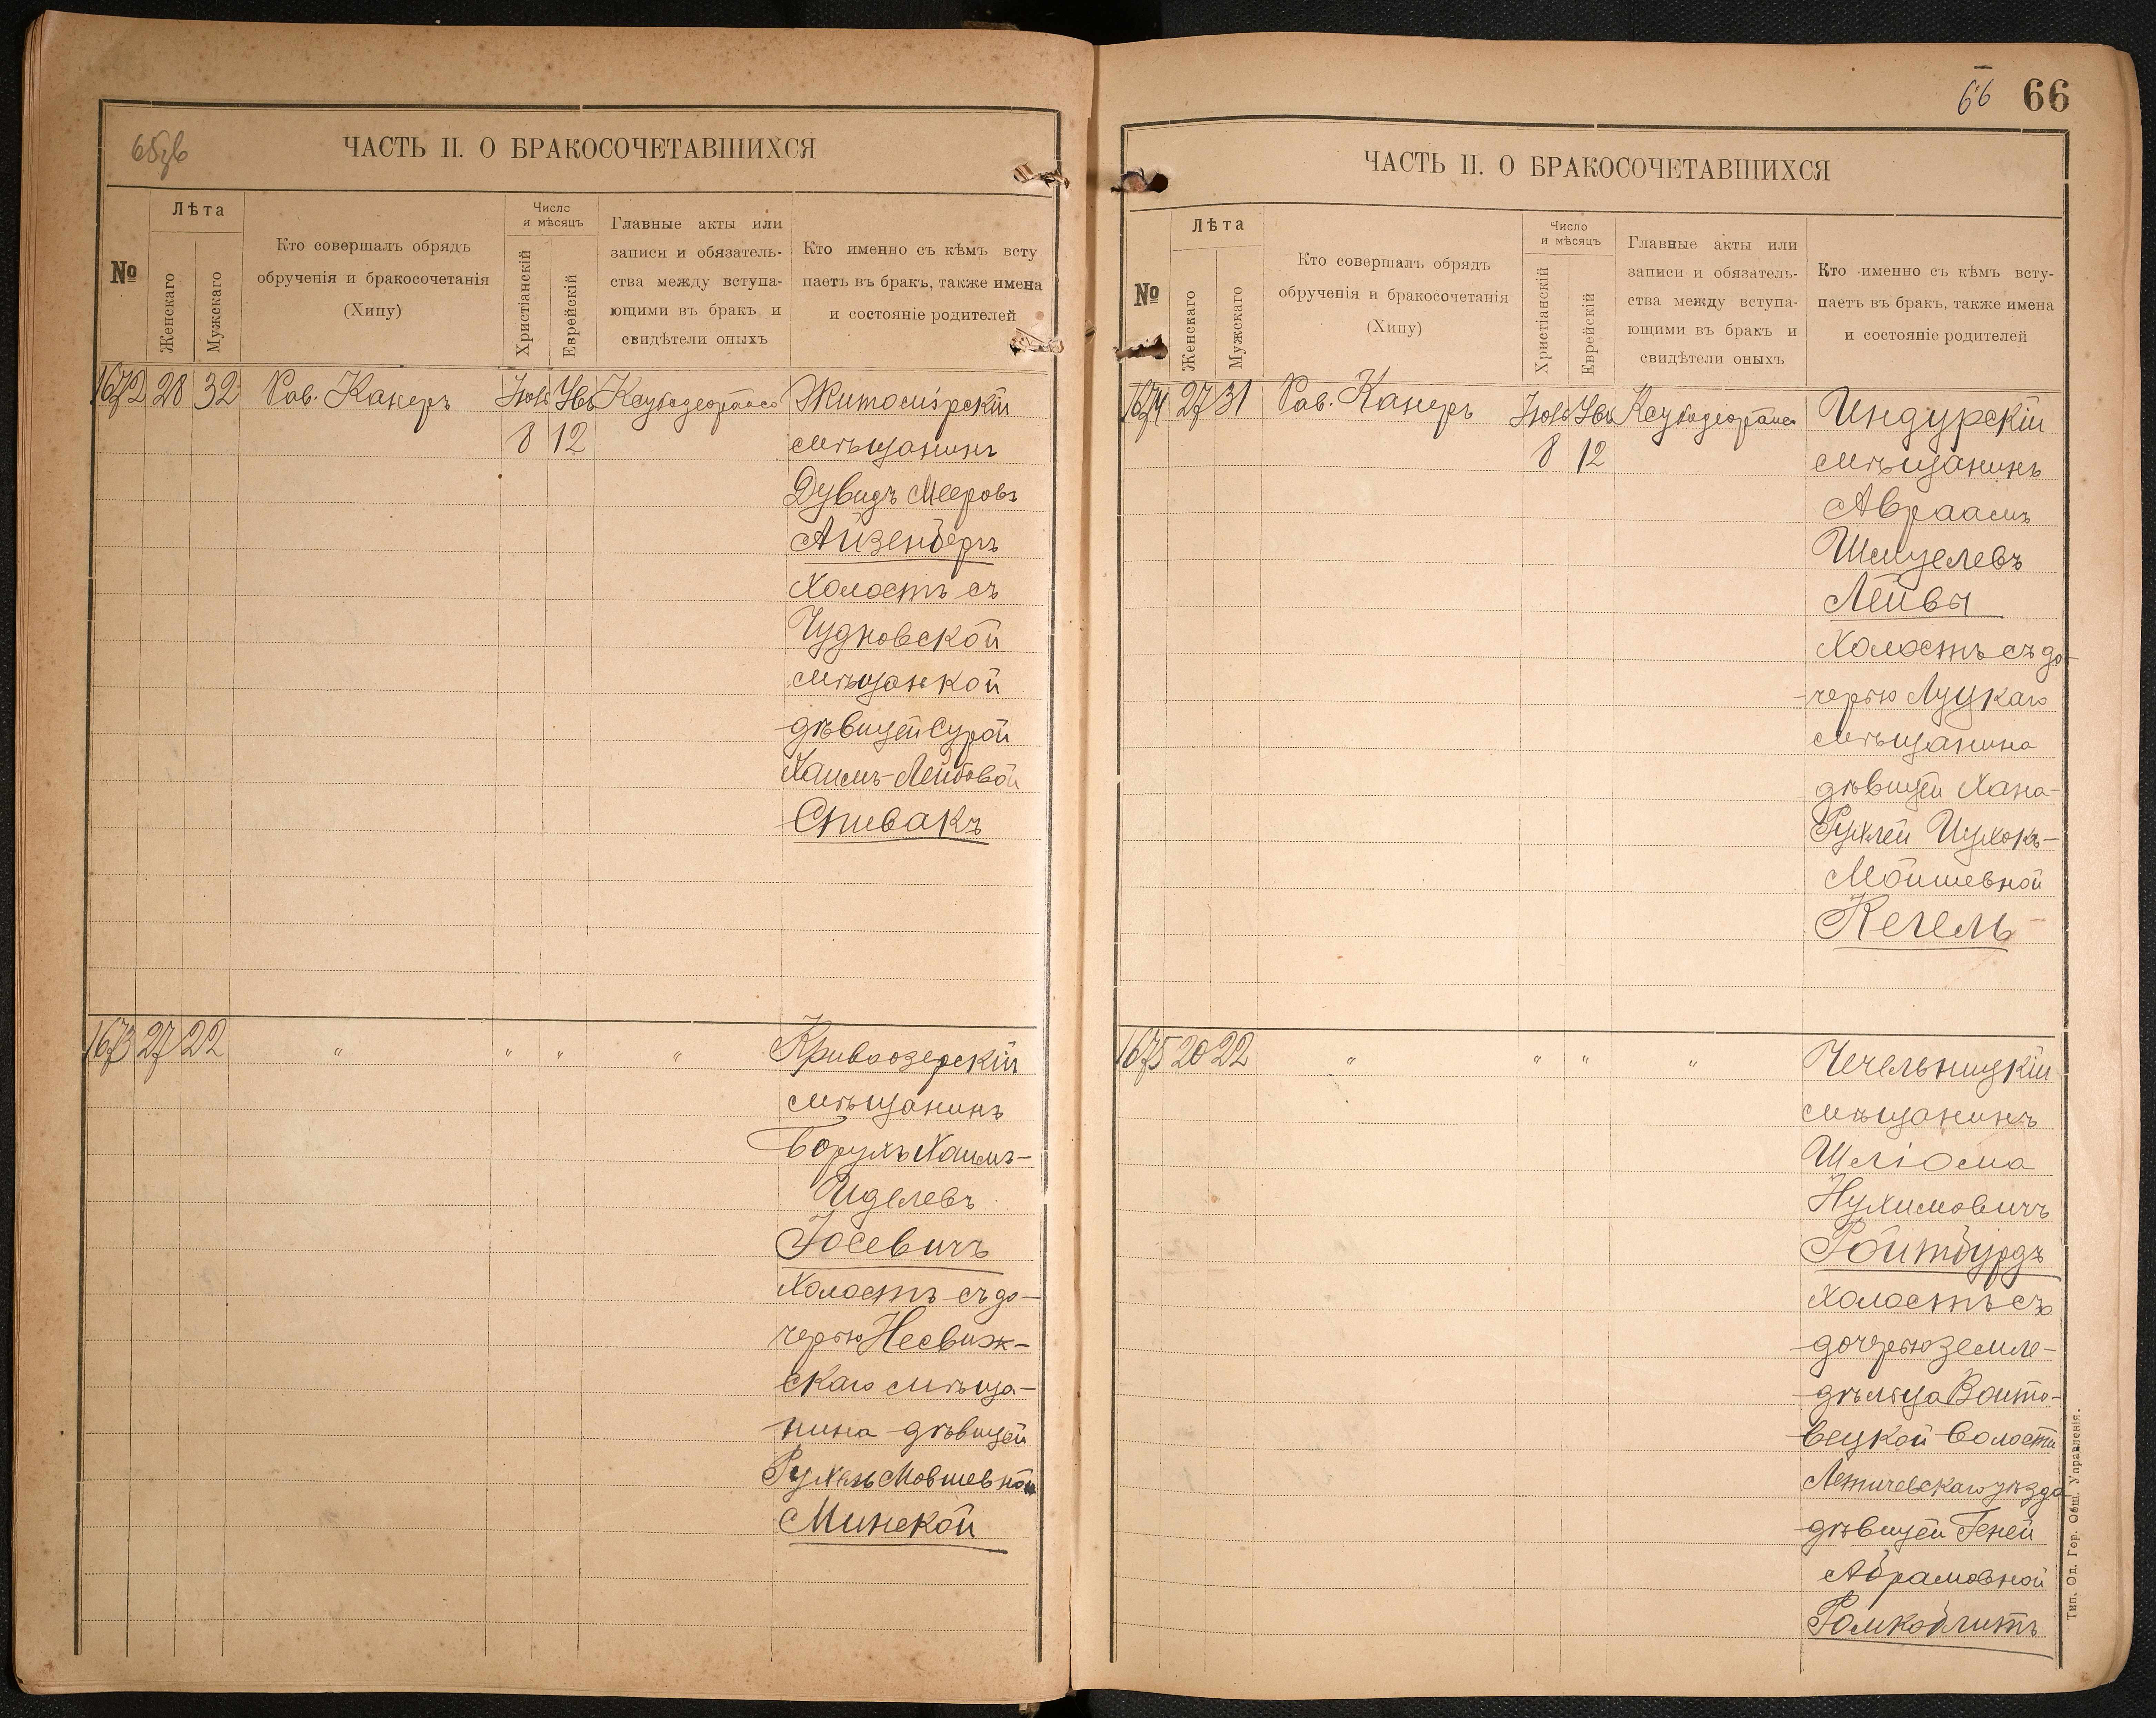 65об
ЧАСТЬ II. О БРАКОСОЧЕТАВШИХСЯ
№
Лѣта
Женскаго
Мужскаго
Кто совершалъ обрядъ
обрученія и бракосочетанія
(Хипу)
Число
и мѣсяцъ
Христіанскій
Еврейскій
Главные акты или
записи и обязатель-
ства между вступа-
ющими въ бракъ и
свидѣтели оныхъ
Кто именно съ кѣмъ всту
паетъ въ бракъ, также имена
и состояніе родителей
1672 28 32 Рав. Канеръ
8 12
Житомірскій
мѣщанинъ
Дувидъ Мееровъ
Айзенбергъ
холостъ съ
Чудновской
мѣщанкой
дѣвицей Сурой
Хаимъ-Лейбовой
Спивакъ
1673 27 22 " " " "
Кривоозерскій
мѣщанинъ
Борухъ Хаимъ-
Иделевъ
Іосевичъ
холостъ съ до-
черью Несвиж-
скаго мѣща-
нина дѣвицей
Рухель Мовшевной
Минской
66 66
ЧАСТЬ II. О БРАКОСОЧЕТАВШИХСЯ
№
Лѣта
Женскаго
Мужскаго
Кто совершалъ обрядъ
обрученія и бракосочетанія
(Хипу)
Число
и мѣсяцъ
Христіанскій
Еврейскій
Главные акты или
записи и обязатель-
ства между вступа-
ющими въ бракъ и
свидѣтели оныхъ
Кто именно съ кѣмъ всту-
паетъ въ бракъ, также имена
и состояніе родителей
1674 27 31 Рав. Канеръ
8 12
Индурскій
мѣщанинъ
Авраамъ
Шмуелевъ
Лейвы
холостъ съ до-
черью Луцкаго
мѣщанина
дѣвицей Хана-
Рухлей Ицхокъ-
Мойшевной
Кегель
1675 20 22 " " " "
Чечельницкій
мѣщанинъ
Шліома
Нухимовичъ
Ройтбурдъ
холостъ съ
дочерью земле-
дѣльца Войто-
вецкой волости
Летичевскаго уѣзда
дѣвицей Геней
Абрамовной
Тип. Од. Гор. Общ. Управленія.